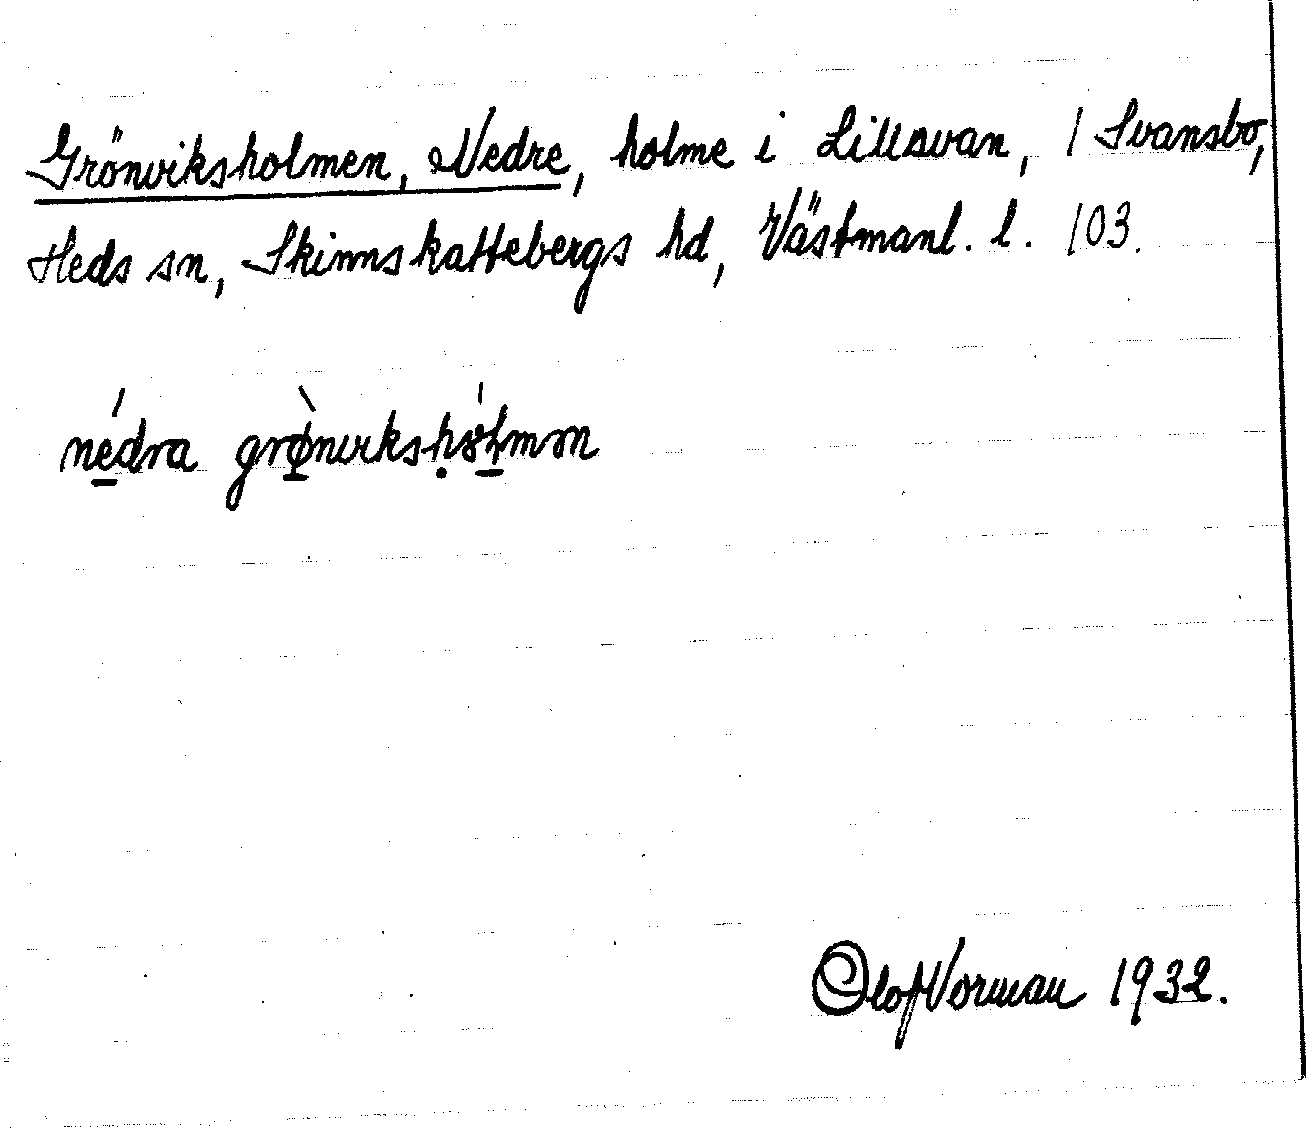 Grönviksholmen, Nedre, holme i Lillsvan, 1 Svansbo,
Heds sn, Skinnskattebergs hd, Västmanl. l. 103.
nédra grø̀nvikshólmən
Olof Norman 1932.